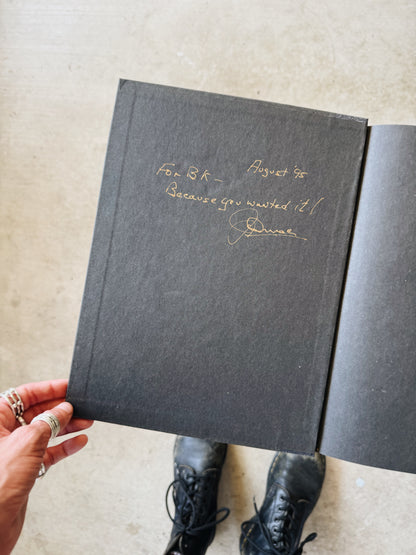 For BK — August '95
Because you wanted it!